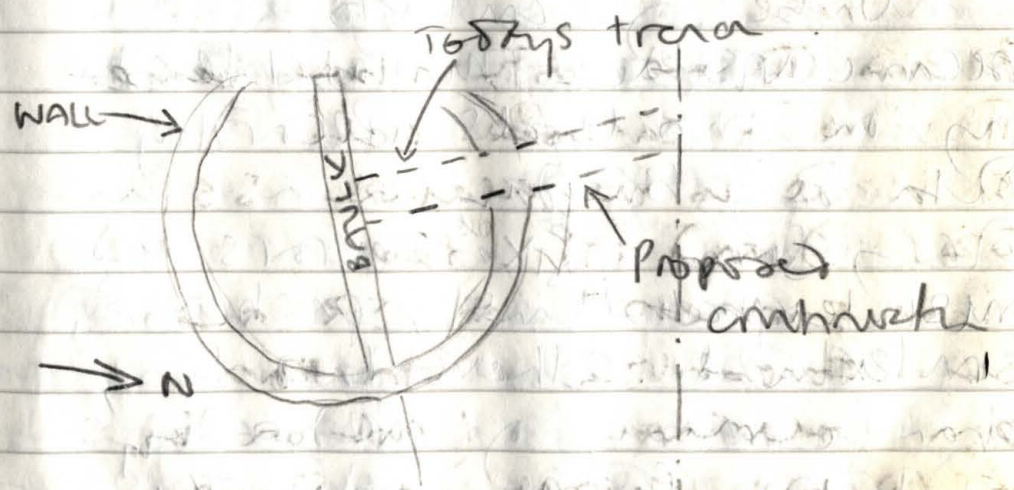 Todays trench
WALL
BAULK
Proposed
continuation
N